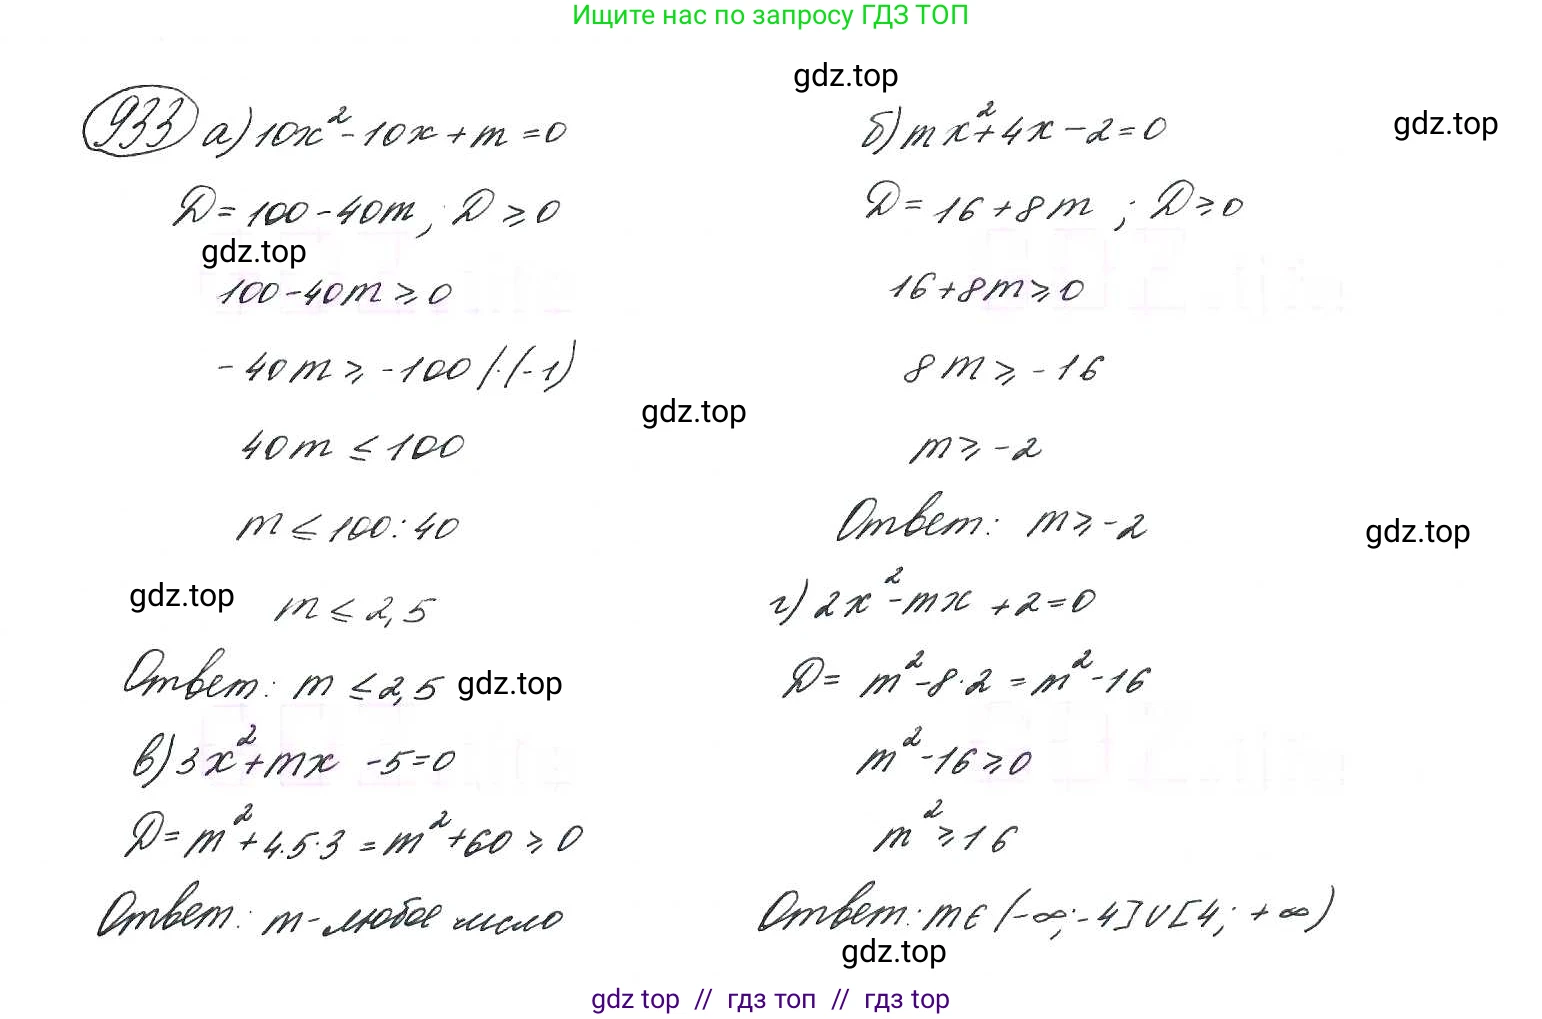 Ищите нас по запросу ГДЗ ТОП
gdz.top
gdz.top
933 а) 10x² - 10x + m = 0
D = 100 - 40m, D ⩾ 0
gdz.top
100 - 40m ⩾ 0
- 40m ⩾ -100 /·(-1)
40m ≤ 100
m ≤ 100 : 40
gdz.top
m ≤ 2,5
Ответ: m ≤ 2,5
gdz.top
в) 3x² + mx - 5 = 0
D = m² + 4·5·3 = m² + 60 ⩾ 0
Ответ: m - любое число
б) mx² + 4x - 2 = 0
D = 16 + 8m ; D ⩾ 0
16 + 8m ⩾ 0
8m ⩾ -16
gdz.top
m ⩾ -2
Ответ: m ⩾ -2
gdz.top
г) 2x² - mx + 2 = 0
D = m² - 8·2 = m² - 16
m² - 16 ⩾ 0
m² ⩾ 16
Ответ: m ∈ (-∞; -4] ∪ [4; +∞)
gdz.top
gdz top // гдз топ // гдз top